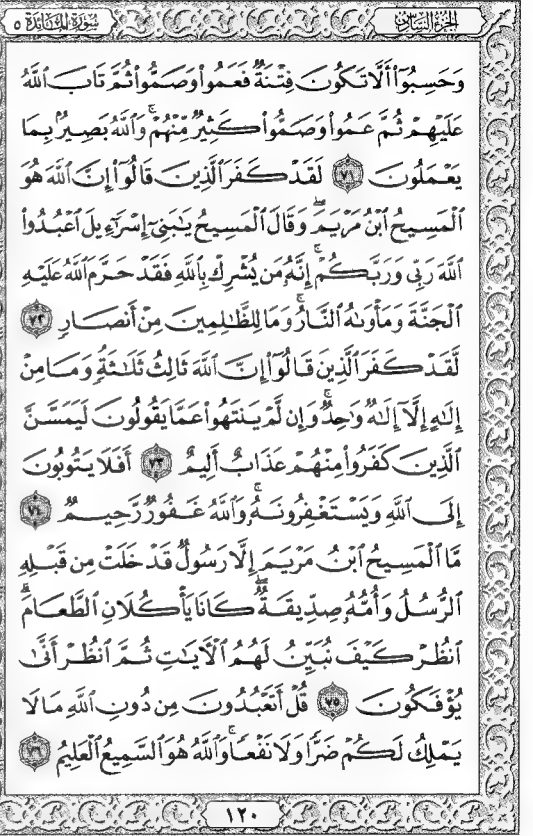 الجزء السادس
سورة المائدة ٥
وَحَسِبُوٓا۟ أَلَّا تَكُونَ فِتْنَةٌ فَعَمُوا۟ وَصَمُّوا۟ ثُمَّ تَابَ ٱللَّهُ
عَلَيْهِمْ ثُمَّ عَمُوا۟ وَصَمُّوا۟ كَثِيرٌ مِّنْهُمْ ۚ وَٱللَّهُ بَصِيرٌۢ بِمَا
يَعْمَلُونَ ٧١ لَقَدْ كَفَرَ ٱلَّذِينَ قَالُوٓا۟ إِنَّ ٱللَّهَ هُوَ
ٱلْمَسِيحُ ٱبْنُ مَرْيَمَ ۖ وَقَالَ ٱلْمَسِيحُ يَٰبَنِىٓ إِسْرَٰٓءِيلَ ٱعْبُدُوا۟
ٱللَّهَ رَبِّى وَرَبَّكُمْ ۖ إِنَّهُۥ مَن يُشْرِكْ بِٱللَّهِ فَقَدْ حَرَّمَ ٱللَّهُ عَلَيْهِ
ٱلْجَنَّةَ وَمَأْوَىٰهُ ٱلنَّارُ ۖ وَمَا لِلظَّٰلِمِينَ مِنْ أَنصَارٍ ٧٢
لَّقَدْ كَفَرَ ٱلَّذِينَ قَالُوٓا۟ إِنَّ ٱللَّهَ ثَالِثُ ثَلَٰثَةٍ ۘ وَمَا مِنْ
إِلَٰهٍ إِلَّآ إِلَٰهٌ وَٰحِدٌ ۚ وَإِن لَّمْ يَنتَهُوا۟ عَمَّا يَقُولُونَ لَيَمَسَّنَّ
ٱلَّذِينَ كَفَرُوا۟ مِنْهُمْ عَذَابٌ أَلِيمٌ ٧٣ أَفَلَا يَتُوبُونَ
إِلَى ٱللَّهِ وَيَسْتَغْفِرُونَهُۥ ۚ وَٱللَّهُ غَفُورٌ رَّحِيمٌ ٧٤
مَّا ٱلْمَسِيحُ ٱبْنُ مَرْيَمَ إِلَّا رَسُولٌ قَدْ خَلَتْ مِن قَبْلِهِ
ٱلرُّسُلُ وَأُمُّهُۥ صِدِّيقَةٌ ۖ كَانَا يَأْكُلَانِ ٱلطَّعَامَ ۗ
ٱنظُرْ كَيْفَ نُبَيِّنُ لَهُمُ ٱلْءَايَٰتِ ثُمَّ ٱنظُرْ أَنَّىٰ
يُؤْفَكُونَ ٧٥ قُلْ أَتَعْبُدُونَ مِن دُونِ ٱللَّهِ مَا لَا
يَمْلِكُ لَكُمْ ضَرًّا وَلَا نَفْعًا ۚ وَٱللَّهُ هُوَ ٱلسَّمِيعُ ٱلْعَلِيمُ ٧٦
١٢٠